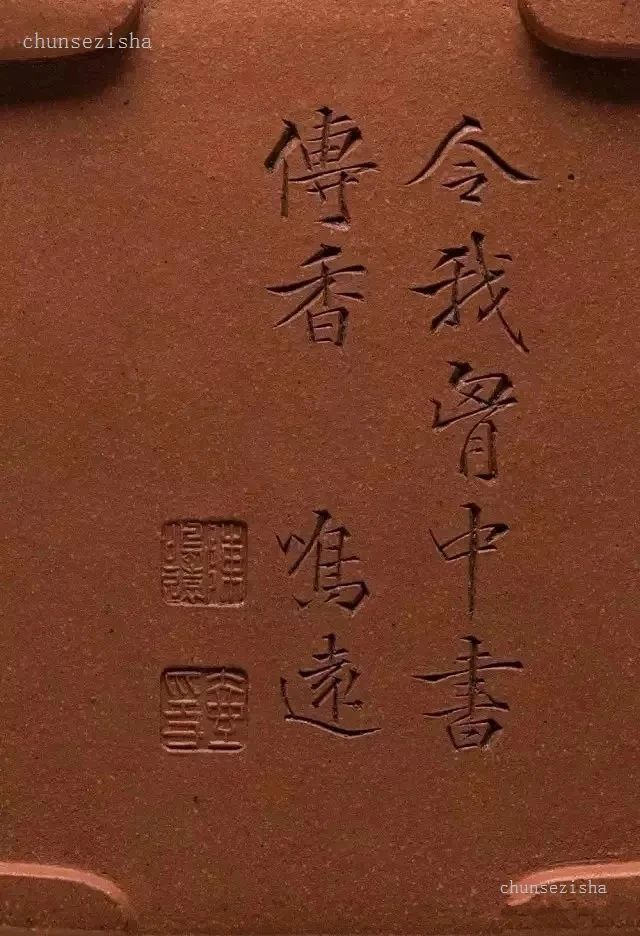 chunsezisha
令我胷中書
傳香 鳴遠
chunsezisha